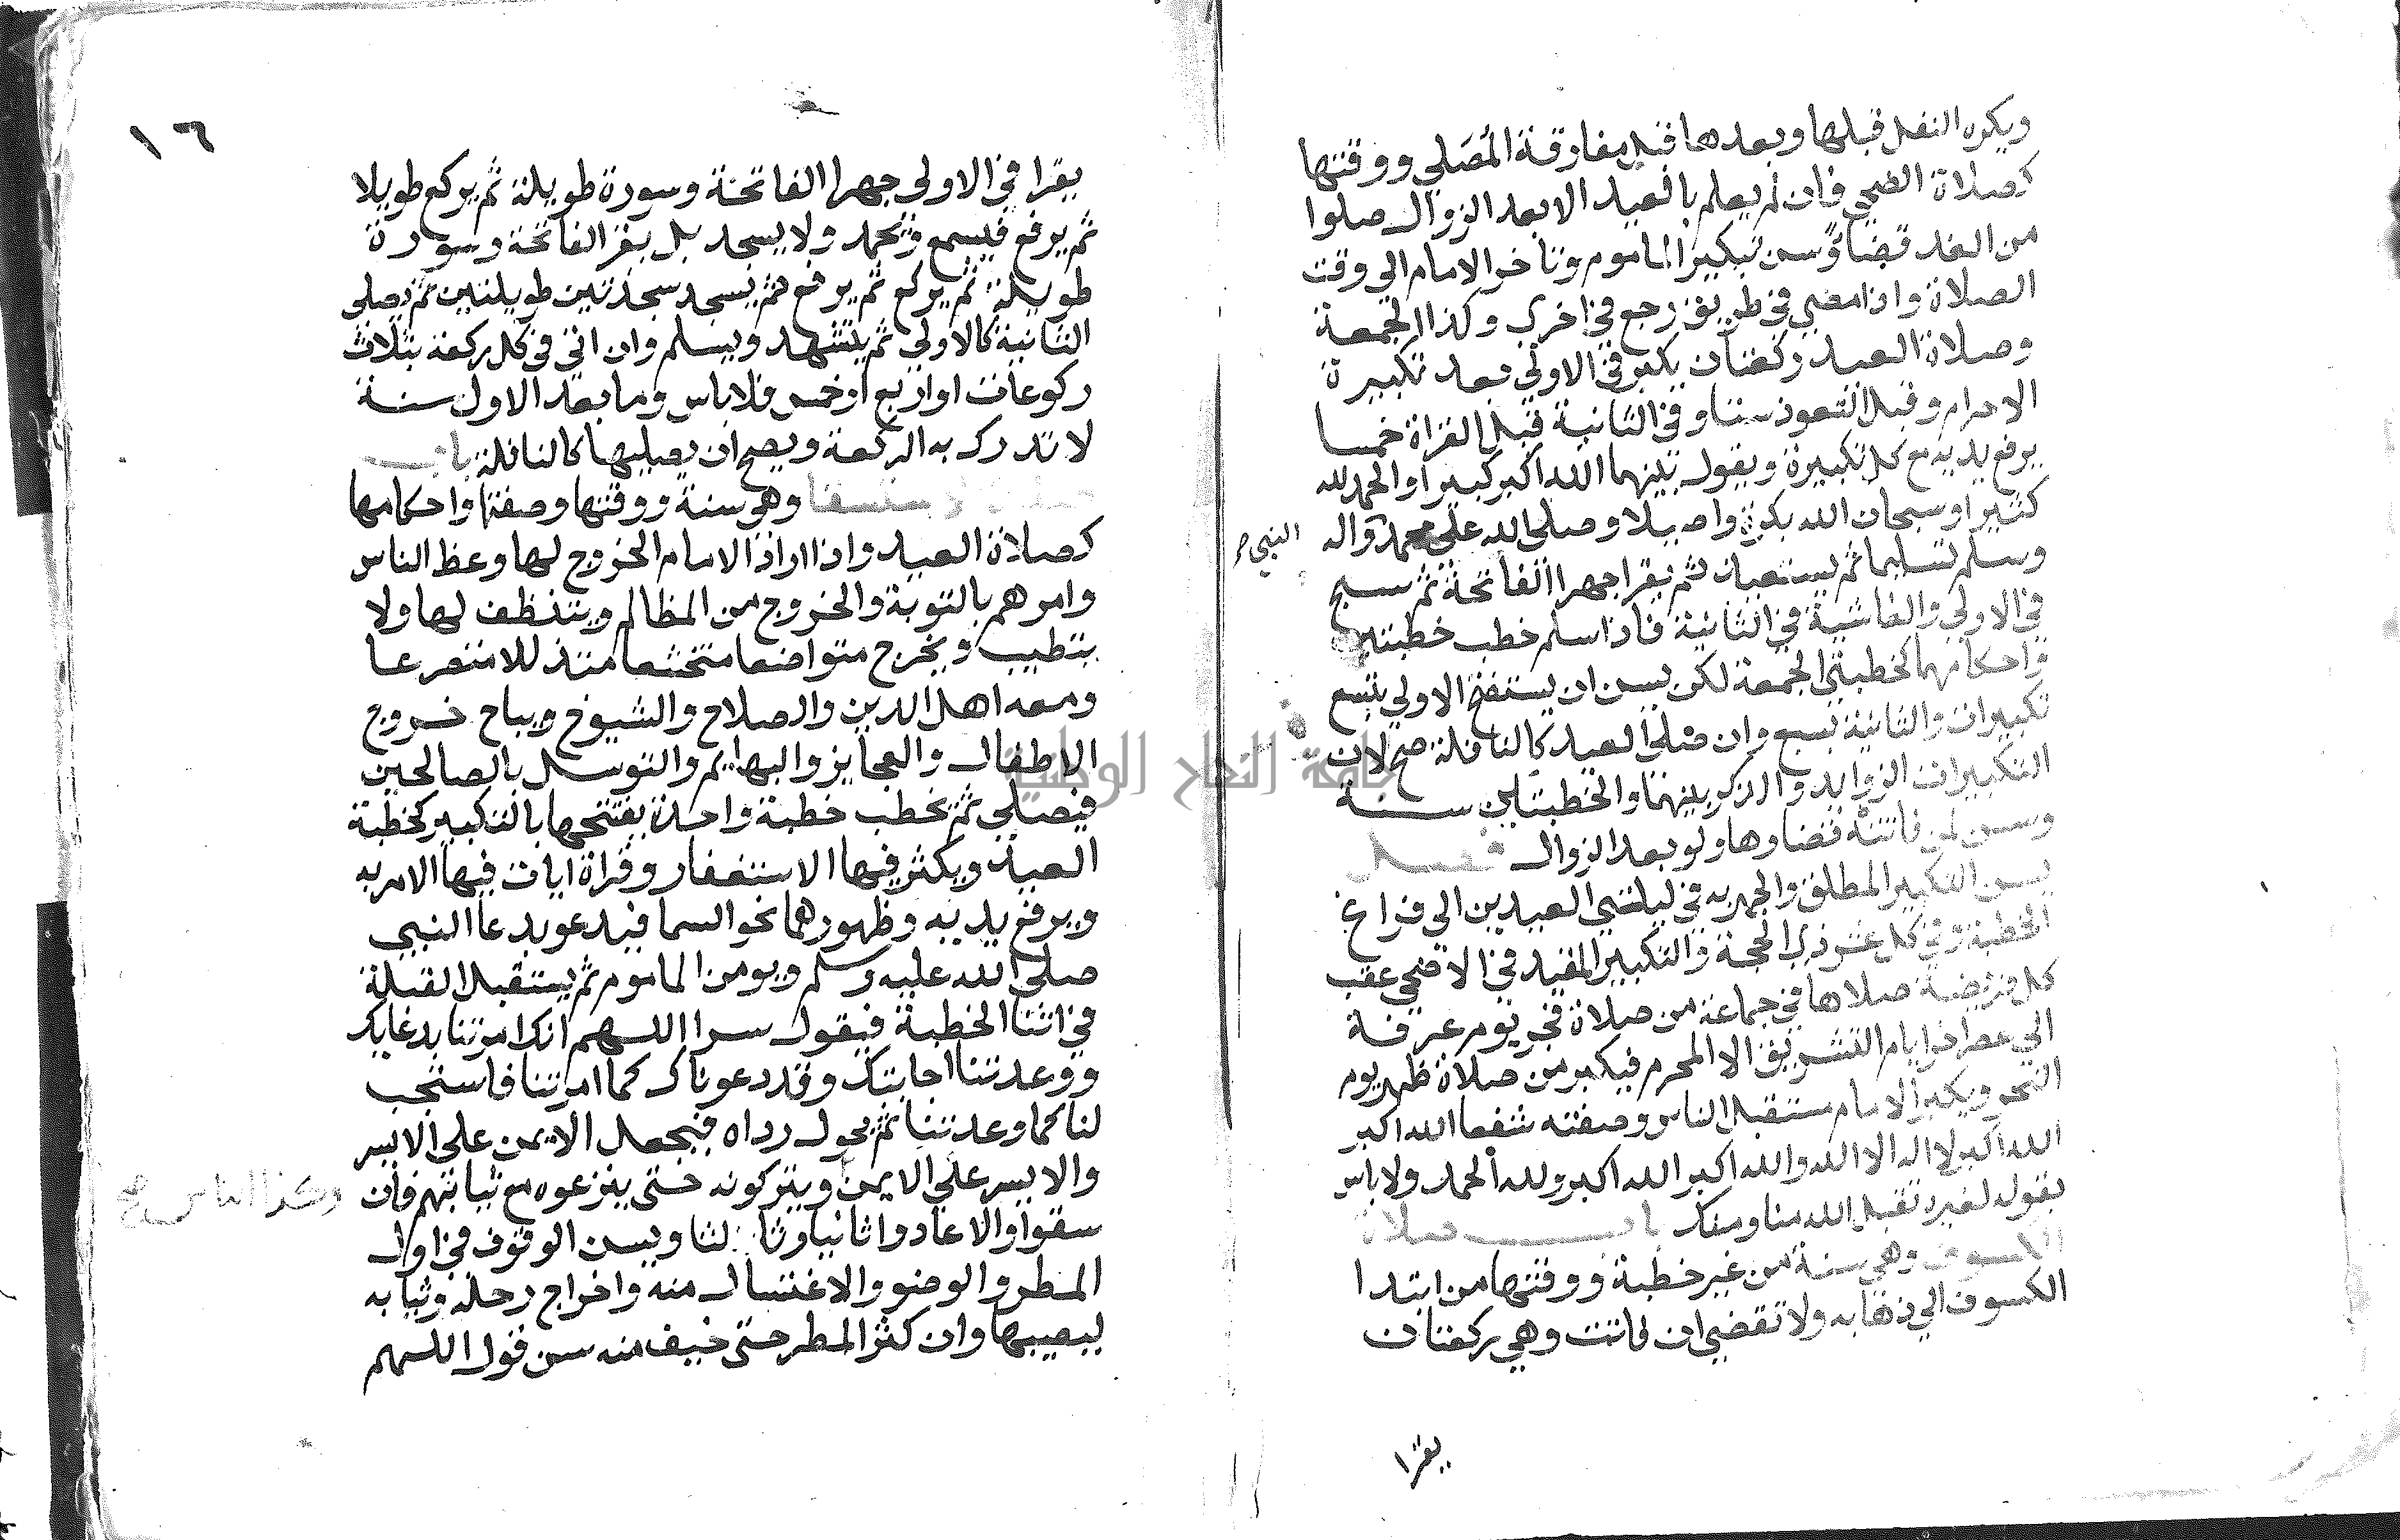 ويكره النفل قبلها وبعدها قبل مفارقة المُصَلي ووقتها
كصلاة الضحي فان لم يعلم بالعيد الا بعد الزوال صلوا
من الغد قضاءً وسن تبكير الماموم وتاخر الامام الي وقت
الصلاة واذا مضي في طريق رجع في اخري وكذا الجمعة
وصلاة العيد ركعتان يكبر في الاولي بعد تكبيرة
الاحرام وقبل التعوذ ستا وفي الثانية قبل القراة خمسا
يرفع يديه مع كل تكبيرة ويقول بينهما الله اكبر كبيرا والحمد لله
كثيرا وسبحان الله بكرة واصيلا وصلي الله علي محمد واله
النبي
وسلم تسليما ثم يستعيذ ثم يقرا جهرا الفاتحة ثم سبح
في الاولي والغاشية في الثانية فاذا سلم خطب خطبتين
واحكامهما كخطبتي الجمعة لكن يسن ان يستفتح الاولي بتسع
تكبيرات والثانية بسبع وان صلي العيد كالنافلة صح لان
التكبيرات الزوايد والذكر بينهما والخطبتين سنة
وسن لمن فاتته قضاوها ولو بعد الزوال فصل
يسن التكبير المطلق والجهر به في ليلتي العيدين الي فراغ
الخطبة وفي كل عشر ذي الحجة والتكبير المقيد في الاضحي عقب
كل فريضة صلاها في جماعة من صلاة فجر يوم عرفة
الي عصر اخر ايام التشريق الا المحرم فيكبر من صلاة ظهر يوم
النحر ويكبر الامام مستقبل الناس وصفته شفعا الله اكبر
الله اكبر لا اله الا الله والله اكبر الله اكبر ولله الحمد ولا باس
بقوله لغيره تقبل الله منا ومنك باب صلاة
الكسوف وهي سنة من غير خطبة ووقتها من ابتدا
الكسوف الي ذهابه ولا تقضي ان فاتت وهي ركعتان
يقرا
١٦
يقرا في الاولي جهرا الفاتحة وسورة طويلة ثم يركع طويلا
ثم يرفع فيسمع ويحمد ولا يسجد بل يقرا الفاتحة وسورة
طويلة ثم يركع ثم يرفع ثم يسجد سجدتين طويلتين ثم يصلي
الثانية كالاولي ثم يتشهد ويسلم وان اتي في كل ركعة بثلاث
ركوعات او اربع او خمس فلا باس وما بعد الاول سنة
لا تدرك به الركعة ويصح ان يصليها كالنافلة باب
صلاة الاستسقا وهو سنة ووقتها وصفتها واحكامها
كصلاة العيد واذا اراد الامام الخروج لها وعظ الناس
وامرهم بالتوبة والخروج من المظالم ويتنظف لها ولا
يتطيب ويخرج متواضعا متخشعا متذللا متضرعا
ومعه اهل الدين والصلاح والشيوخ ويباح خروج
الاطفال والعجايز والبهايم والتوسل بالصالحين
فيصلي ثم يخطب خطبة واحدة يفتتحها بالتكبير كخطبة
العيد ويكثر فيها الاستغفار وقراة ايات فيها الامر به
ويرفع يديه وظهورهما نحو السما فيدعو بدعا النبي
صلي الله عليه وسلم ويومن الماموم ثم يستقبل القبلة
في اثنا الخطبة فيقول سرا اللهم انك امرتنا بدعايك
ووعدتنا اجابتك وقد دعوناك كما امرتنا فاستجب
لنا كما وعدتنا ثم يحول رداه فيجعل الايمن علي الايسر
والايسر علي الايمن ويتركونه حتي ينزعوه مع ثيابهم فان
وكذا الناس صح
سقوا والا عادوا ثانيا وثالثا ويسن الوقوف في اول
المطر والوضو والاغتسال منه واخراج رحله وثيابه
ليصيبها وان كثر المطر حتي خيف منه سن قول اللهم
جامعة النجاح الوطنية